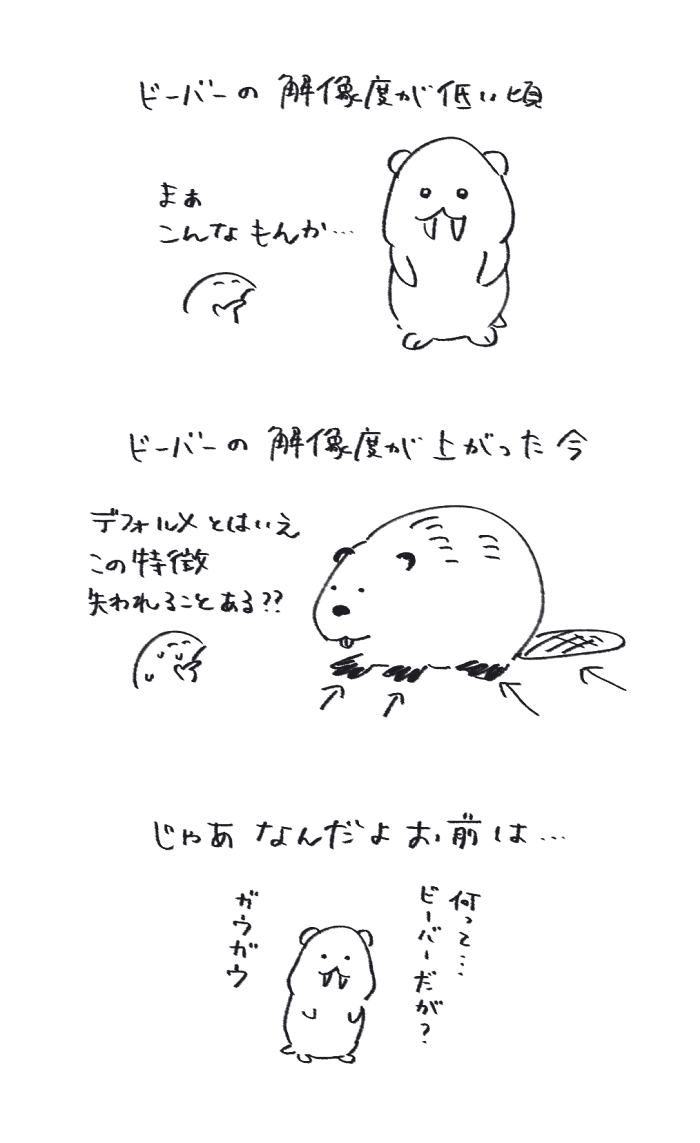 ビーバーの解像度が低い頃
まぁ
こんなもんか…
ビーバーの解像度が上がった今
デフォルメとはいえ
この特徴
失われることある??
じゃあなんだよお前は…
何って…
ビーバーだが?
ガウガウ